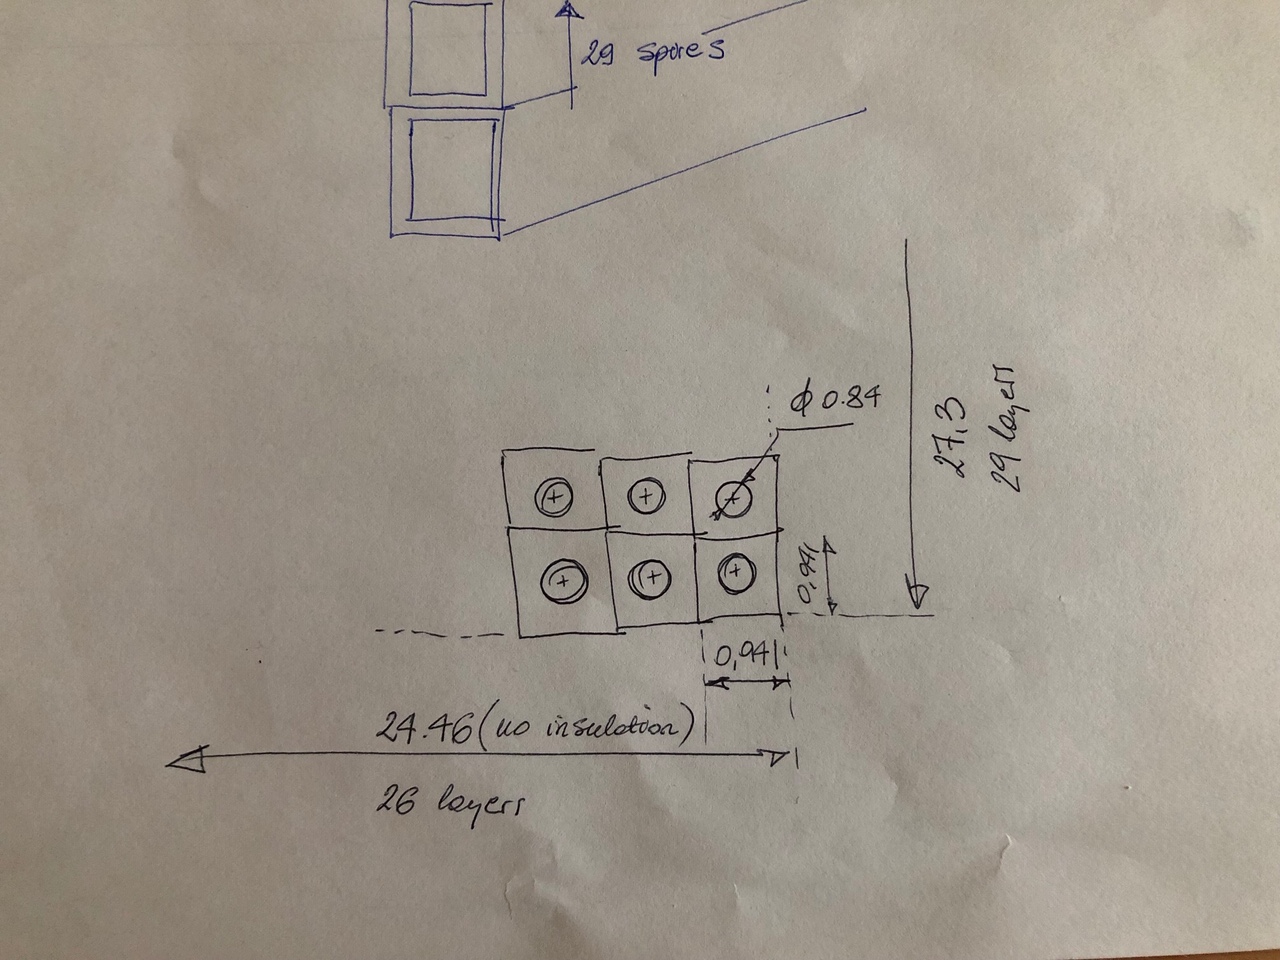 29 spires
ϕ 0.84
27,3
29 layers
0,941
0,941
24.46 (no insulation)
26 layers